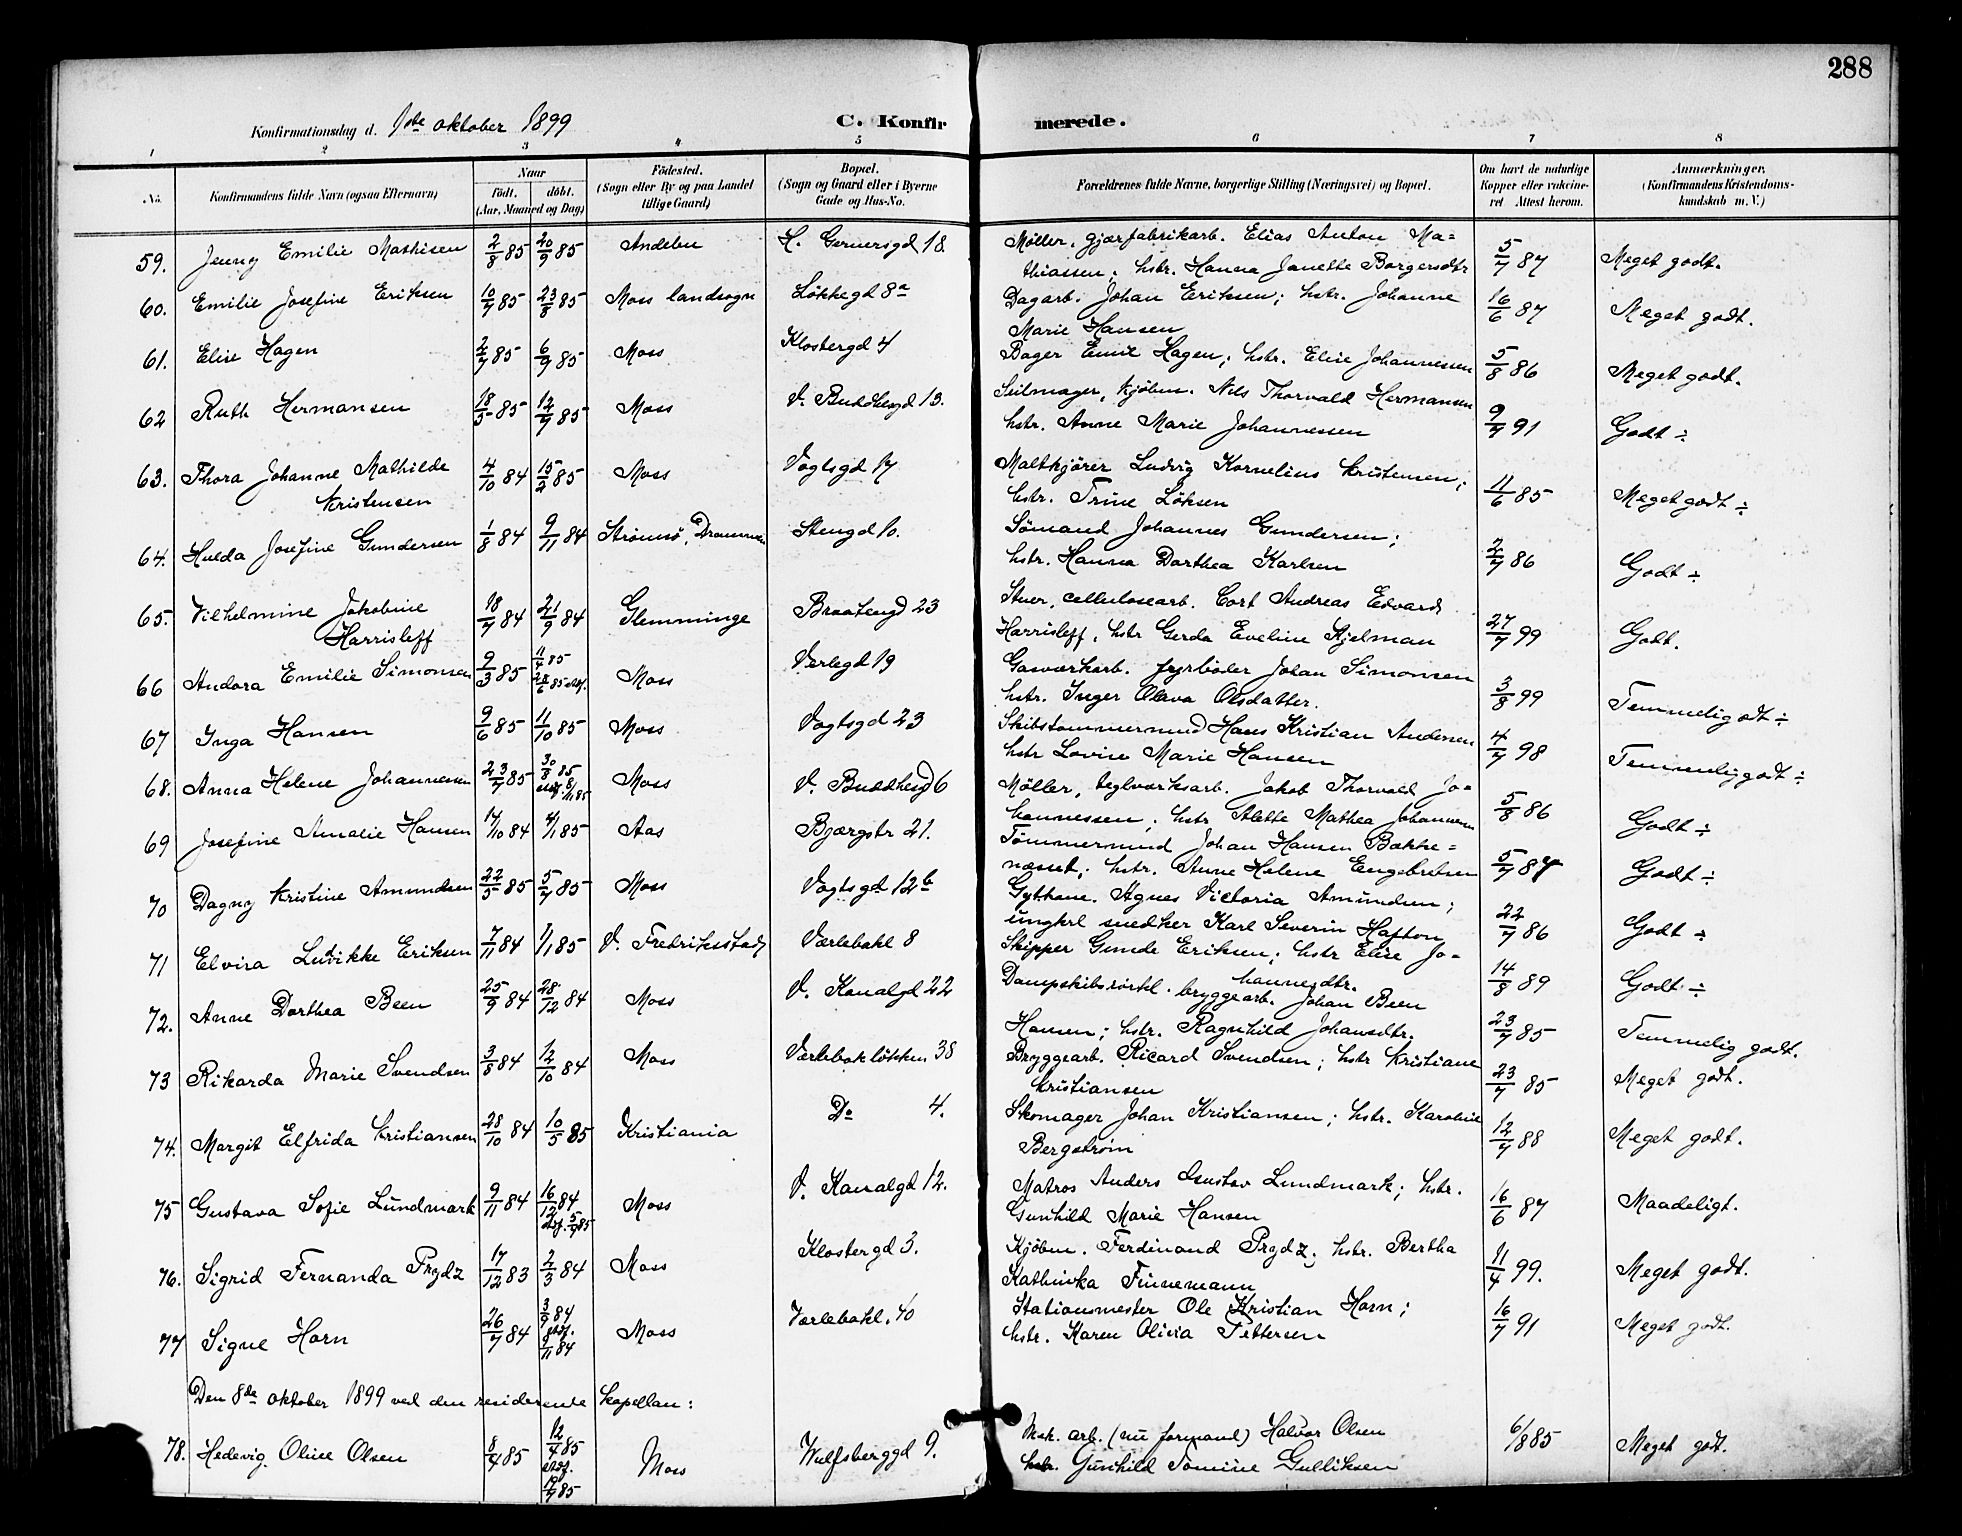 288
Konfirmationsdag d. 1ste oktober 1899
C. Konfir merede.
1 2 3 4 5 6 7 8
No. Konfirmandens fulde Navn (ogsaa Efternavn) Naar født. døbt. (Aar, Maaned og Dag) Fødested. (Sogn eller By og paa Landet tillige Gaard) Bopæl. (Sogn og Gaard eller i Byerne Gade og Hus-No. Forældrenes fulde Navne, borgerlige Stilling (Næringsvei) og Bopæl. Om havt de naturlige Kopper eller vakcineret Attest herom. Anmærkninger. (Konfirmandens Kristendomskundskab m. V.)
59. Jenny Emilie Mathisen 2/8 85 20/9 85 Andebu H. Gernersgd 18. Møller, gjærfabrikarb. Elias Anton Ma=
thiassen; hstr. Hanna Janette Borgersdtr 5/7 87 Meget godt.
60. Emilie Josefine Eriksen 10/7 85 23/8 85 Moss landsogn Løkkegd 8a Dagarb. Johan Eriksen; hstr. Johanne
Marie Hansen 16/6 87 Meget godt.
61. Elise Hagen 2/7 85 6/9 85 Moss Klostergd 4 Bager Emil Hagen; hstr. Elise Johannessen 5/8 86 Meget godt.
62 Ruth Hermansen 18/5 85 12/7 85 Moss V. Buddhesgd 13. Seilmager, kjøbm. Nils Thorvald Hermansen
hstr. Anne Marie Johannessen 9/7 91 Godt ÷
63. Thora Johanne Mathilde 4/10 84 15/2 85 Moss Vogtsgd 17 Maltkjører Ludvig Kornelius Kristensen;
Kristensen hstr. Trine Løksen 11/6 85 Meget godt ÷
64. Hulda Josefine Gundersen 1/8 84 9/11 84 Strømsø, Drammen Stengd 10. Sømand Johannes Gundersen;
hstr. Hanna Dorthea Karlsen 2/7 86 Godt ÷
65. Vilhelmine Jakobine 18/7 84 21/9 84 Glemminge Braatengd 23 Stuer, cellulosearb. Cort Andreas Edvard
Harrisleff Harrisleff, hstr Gerda Eveline Hjelman 27/7 99 Godt.
66 Andora Emilie Simonsen 9/3 85 11/4 85 28/6 85 stdf. Moss Værlegd 19 Gasværksarb. fyrbøder Johan Simonsen
hstr. Inger Olava Olsdatter. 3/8 99 Temmelig godt ÷
67 Inga Hansen 9/6 85 11/10 85 Moss Vogtsgd 23 Skibstømmermand Hans Kristian Andersen
hstr Lovise Marie Hansen 4/7 98 Temmelig godt ÷
68. Anna Helene Johannessen 23/7 85 30/8 85 stdf. 8/11 85 Moss V. Buddhesgd 6 Møller, teglværksarb. Jakob Thorvald Jo=
hannessen; hstr Alette Mathea Johannessen 5/8 86 Godt ÷
69 Josefine Amalie Hansen 17/10 84 4/1 85 Aas Bjærgstr 21. Tømmermand Johan Hansen Bække=
næsset; hstr. Anne Helene Engebretsen 5/7 87 Godt ÷
70 Dagny Kristine Amundsen 22/5 85 5/7 85 Moss Vogtsgd 12b Gythone. Agnes Victoria Amundsen;
ungkrl snedker Karl Severin Hafton 22/7 86 Godt ÷
71 Elvira Ludvikke Eriksen 7/11 84 1/1 85 V. Fredriksstad Værlebakl 8 Skipper Gunde Eriksen; hstr Elise Jo=
hannesdtr. 14/8 89 Godt ÷
72. Anne Dorthea Been 25/9 84 28/12 84 Moss V. Kanalgd 22 Dampskibs bryggearb. Johan Been
Hansen; hstr. Ragnhild Johansdtr. 23/7 85 Temmelig godt.
73 Rikarda Marie Svendsen 3/8 84 12/10 84 Moss Værlebakløkken 38 Bryggearb. Ricard Svendsen; hstr Kristiane
Kristiansen 23/7 85 Meget godt.
74. Margit Elfrida Kristiansen 28/10 84 10/5 85 Kristiania Do 4. Skomager Johan Kristiansen; hstr. Karoline
Bergstrøm 12/7 88 Meget godt.
75 Gustava Sofie Lundmark 9/11 84 16/12 84 stdf. 5/7 85 Moss V. Kanalgd 12. Matros Anders Gustav Lundmark; hstr.
Gunhild Marie Hansen 16/6 87 Maadeligt.
76. Sigrid Fernanda Prydz 17/12 83 2/3 84 Moss Klostergd 3. Kjøbm. Ferdinand Prydz; hstr. Bertha
Kathinka Finnemann 11/4 99. Meget godt.
77 Signe Horn 26/7 84 3/9 84 stdf. 1/11 84 Moss Værlebakl. 40 Stationsmester Ole Kristian Horn;
hstr. Karen Olivia Pettersen 16/7 91 Meget godt.
Den 8de oktober 1899 ved den residerende kapellan:
78. Hedevig Oline Olsen 8/4 85 12/4 85 stdf. 19/7 85 Moss Wulfsberggd 9. Mek. arb. (nu formand) Halvor Olsen
hstr. Gunhild Tomine Gulliksen 6/8 85 Meget godt.